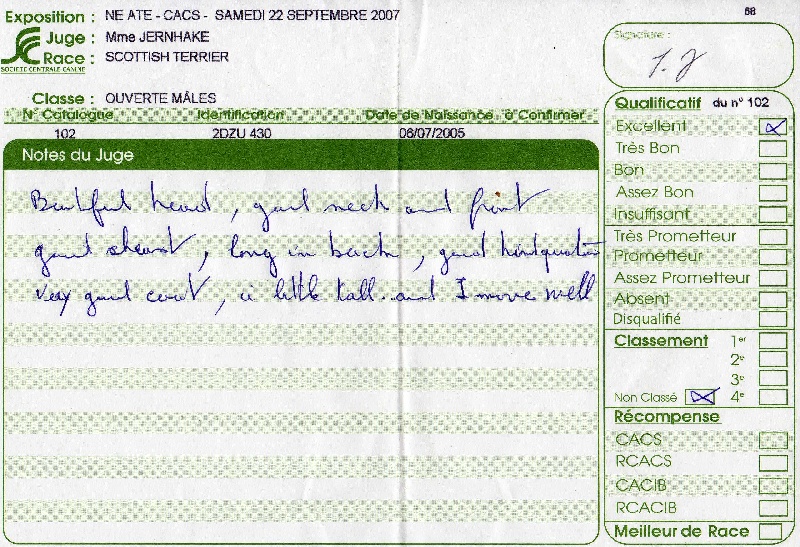 68
Exposition : NE ATE - CACS - SAMEDI 22 SEPTEMBRE 2007
Juge : Mme JERNHAKE
Race : SCOTTISH TERRIER
SOCIETE CENTRALE CANINE
Classe : OUVERTE MÂLES
N° Catalogue Identification Date de Naissance à Confirmer
102 2DZU 430 06/07/2005
Notes du Juge
Beatiful head, good neck and front
good cheast, long in back, good hindquaters
Very good coat, a little tall. and move well
Signature :
Qualificatif du n° 102
Excellent
Très Bon
Bon
Assez Bon
Insuffisant
Très Prometteur
Prometteur
Assez Prometteur
Absent
Disqualifié
Classement 1er
2e
3e
Non Classé 4e
Récompense
CACS
RCACS
CACIB
RCACIB
Meilleur de Race